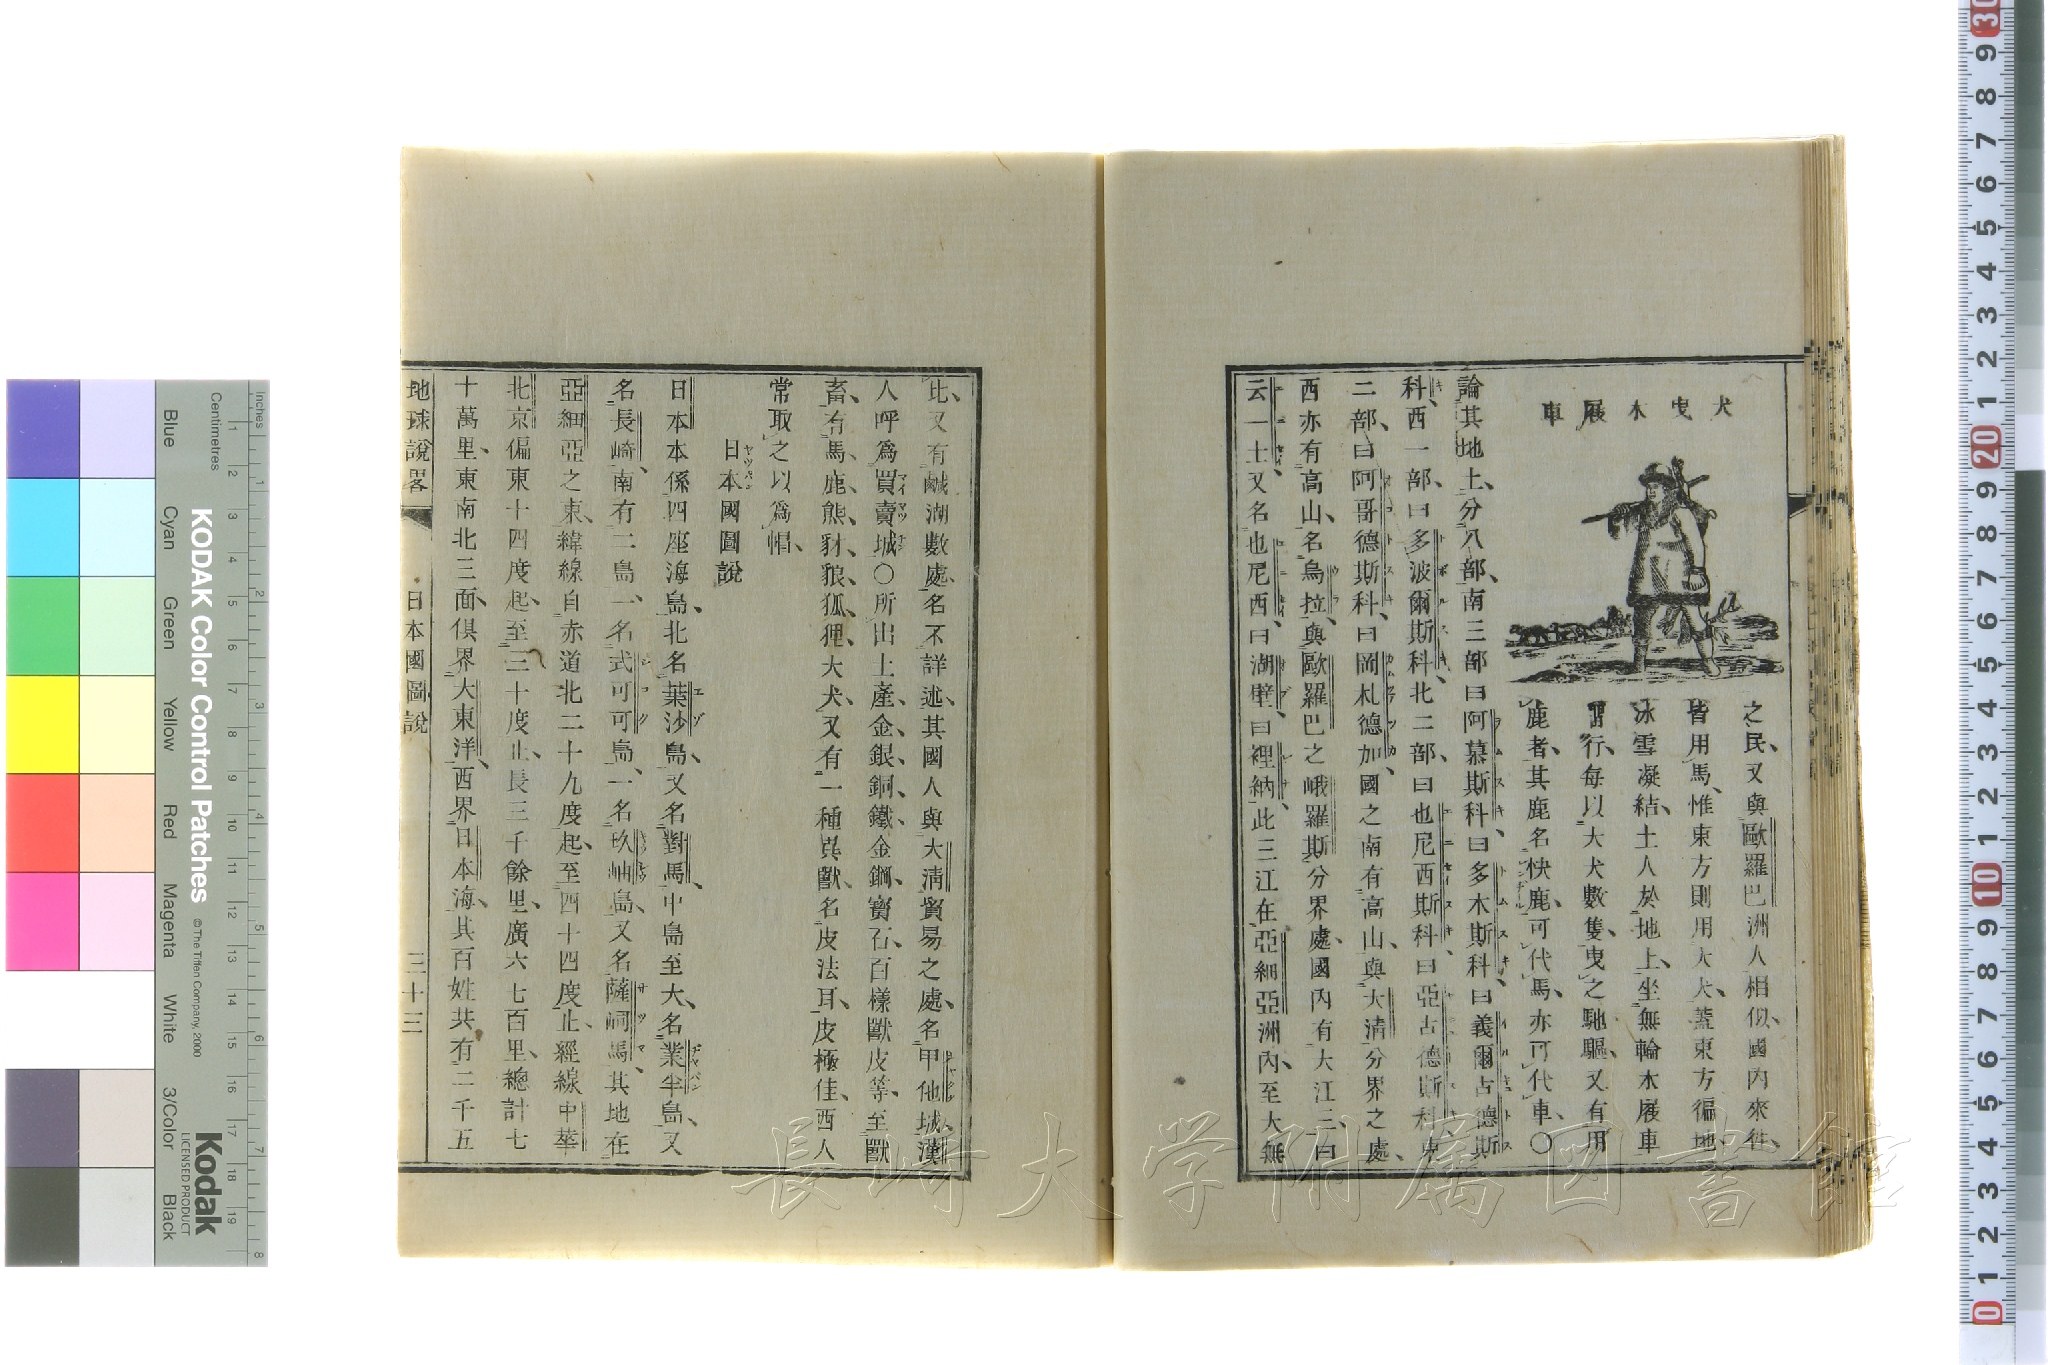 犬曳木屐車
之民、又與歐羅巴洲人相似、國內來往、
皆用馬、惟東方則用大犬、蓋東方徧地
冰雪凝結、土人於地上、坐無輪木屐車
而行、每以大犬數隻、曳之馳驅、又有用
鹿者、其鹿名快鹿、可代馬、亦可代車、〇
論其地土、分八部、南三部曰阿慕斯科、曰多木斯科、曰義爾古德斯
科、西一部、曰多波爾斯科、北二部、曰也尼西斯科、曰亞古德斯科、東
二部、曰阿哥德斯科、曰岡札德加、國之南有高山、與大淸分界之處、
西亦有高山、名烏拉、與歐羅巴之峨羅斯分界處、國內有大江三、曰
云一士又名也尼西、曰湖壁、曰裡納、此三江在亞細亞洲內、至大無
比、又有鹹湖數處、名不詳述、其國人與大淸貿易之處、名甲他城、漢
人呼爲買賣城〇所出土產、金、銀、銅、鐵、金鋼、寳石、百樣獸皮等、至獸
畜、有馬、鹿、熊、豺、狼、狐、狸、大犬、又有一種異獸、名皮法耳、皮極佳、西人
常取之以爲帽、
日本國圖說
日本本係四座海島、北名葉沙島、又名對馬、中島至大、名業半島、又
名長崎、南有二島、一名式可可島、一名玖岫島、又名薩峒馬、其地在
亞細亞之東、緯線自赤道北二十九度起、至四十四度止、經線中華
北京偏東十四度起、至三十度止、長三千餘里、廣六七百里、總計七
十萬里、東南北三面、俱界大東洋、西界日本海、其百姓共有二千五
地球說畧 日本國圖說 三十三
長崎大学附属図書館
KODAK Color Control Patches
© The Tiffen Company, 2000
Kodak
LICENSED PRODUCT
Inches
Centimetres
Blue
Cyan
Green
Yellow
Red
Magenta
White
3/Color
Black